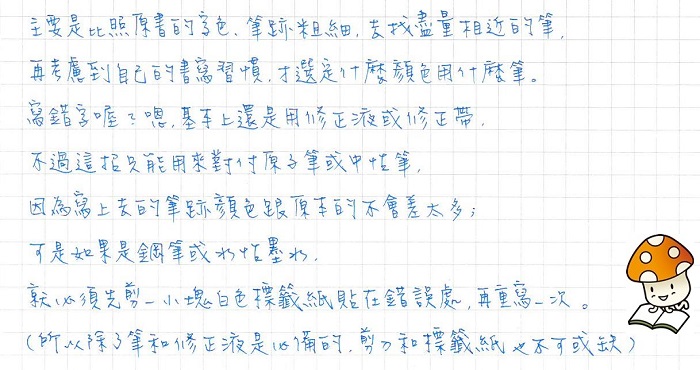 主要是比照原書的字色、筆跡粗細,去找盡量相近的筆,
再考慮到自己的書寫習慣,才選定什麼顏色用什麼筆。
寫錯字喔?嗯,基本上還是用修正液或修正帶,
不過這招只能用來對付原子筆或中性筆,
因為寫上去的筆跡顏色跟原本的不會差太多;
可是如果是鋼筆或水性墨水,
就必須先剪一小塊白色標籤紙貼在錯誤處,再重寫一次。
(所以除了筆和修正液是必備的,剪刀和標籤紙也不可或缺)